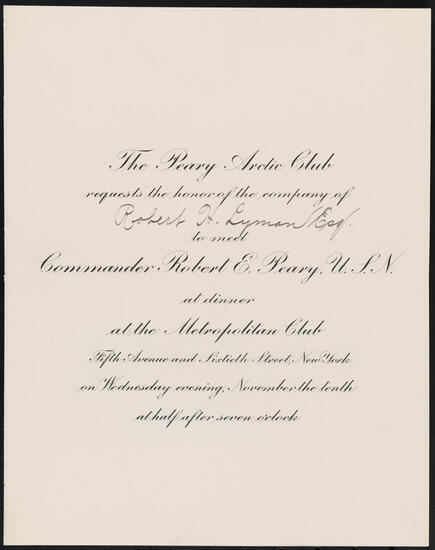 The Peary Arctic Club
requests the honor of the company of
Robert H. Lyman Esq.
to meet
Commander Robert E. Peary, U.S.N.
at dinner
at the Metropolitan Club
Fifth Avenue and Sixtieth Street, New York
on Wednesday evening, November the tenth
at half after seven o'clock